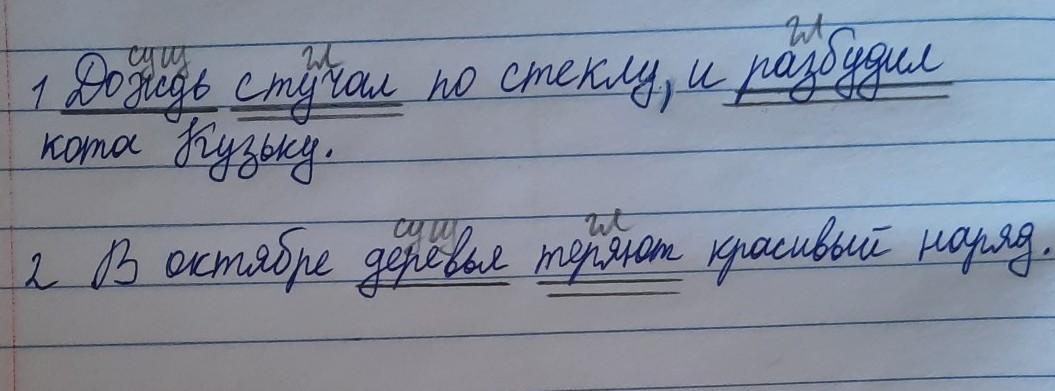 сущ гл гл
1 Дождь стучал по стеклу, и разбудил
кота Кузьку.
сущ гл
2 В октябре деревья теряют красивый наряд.